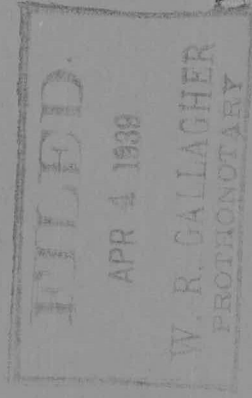 FILED.
APR 4 1939
W. R. GALLAGHER
PROTHONOTARY